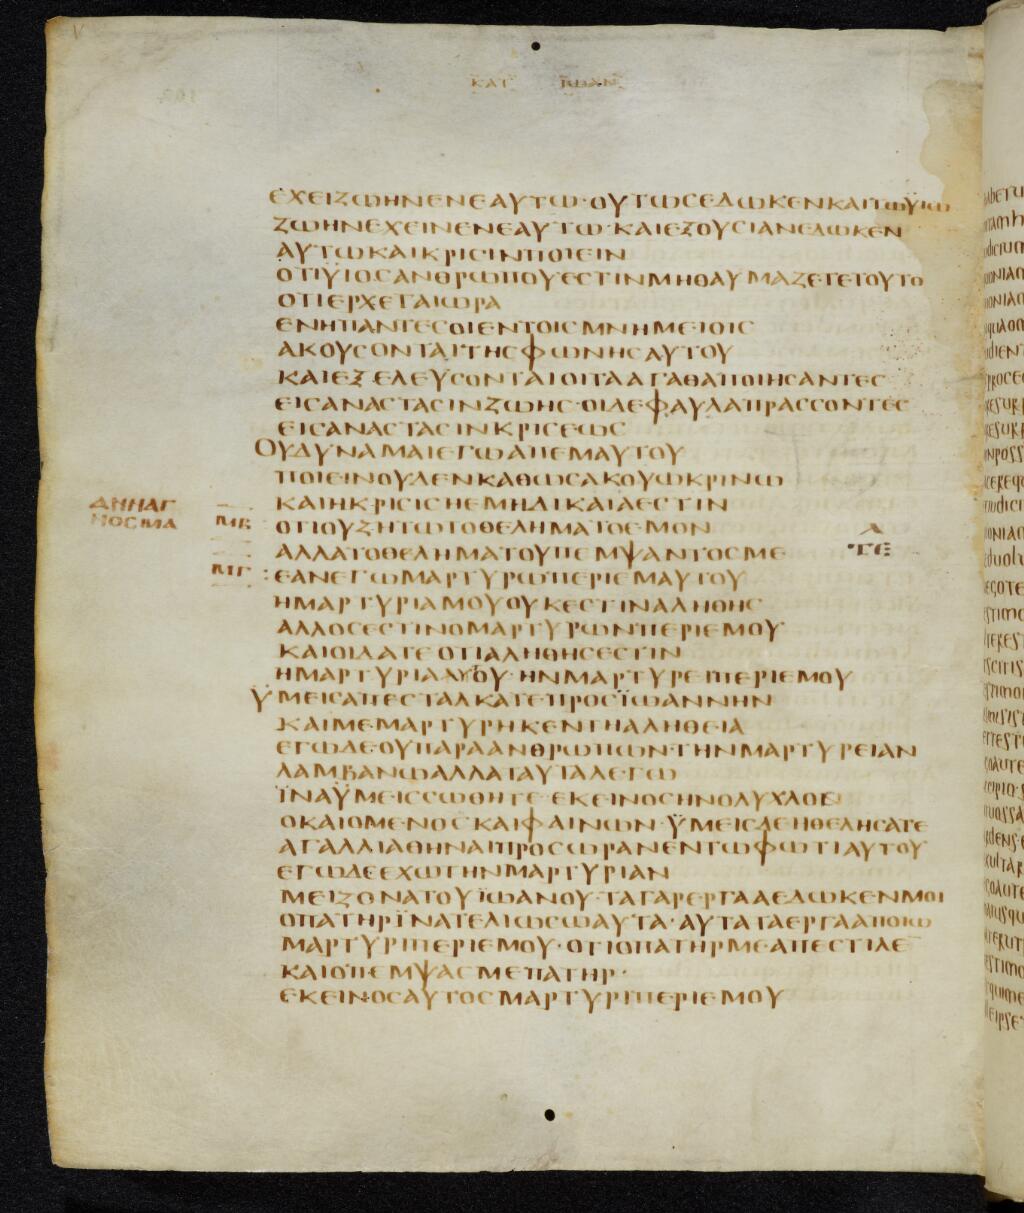 ΚΑΤ ΙΩΑΝ
ΕΧΕΙΖΩΗΝΕΝΕΑΥΤΩ·ΟΥΤΩΣΕΔΩΚΕΝΚΑΙΤΩΥΙΩ
ΖΩΗΝΕΧΕΙΝΕΝΕΑΥΤΩ·ΚΑΙΕΞΟΥΣΙΑΝΕΔΩΚΕΝ
ΑΥΤΩΚΑΙΚΡΙΣΙΝΠΟΙΕΙΝ
ΟΤΙΥΙΟΣΑΝΘΡΩΠΟΥΕΣΤΙΝΜΗΘΑΥΜΑΖΕΤΕΤΟΥΤΟ
ΟΤΙΕΡΧΕΤΑΙΩΡΑ
ΕΝΗΠΑΝΤΕΣΟΙΕΝΤΟΙΣΜΝΗΜΕΙΟΙΣ
ΑΚΟΥΣΟΝΤΑΙΤΗΣΦΩΝΗΣΑΥΤΟΥ
ΚΑΙΕΞΕΛΕΥΣΟΝΤΑΙΟΙΤΑΑΓΑΘΑΠΟΙΗΣΑΝΤΕΣ
ΕΙΣΑΝΑΣΤΑΣΙΝΖΩΗΣ·ΟΙΔΕΦΑΥΛΑΠΡΑΣΣΟΝΤΕΣ
ΕΙΣΑΝΑΣΤΑΣΙΝΚΡΙΣΕΩΣ
ΟΥΔΥΝΑΜΑΙΕΓΩΑΠΕΜΑΥΤΟΥ
ΠΟΙΕΙΝΟΥΔΕΝΚΑΘΩΣΑΚΟΥΩΚΡΙΝΩ
ΚΑΙΗΚΡΙΣΙΣΗΕΜΗΔΙΚΑΙΑΕΣΤΙΝ
ΑΝΝΑΓ
ΝΟΣΜΑ
ΜΒ ΟΤΙΟΥΖΗΤΩΤΟΘΕΛΗΜΑΤΟΕΜΟΝ
ΑΛΛΑΤΟΘΕΛΗΜΑΤΟΥΠΕΜΨΑΝΤΟΣΜΕ ΤΕΛ
ΜΓ :ΕΑΝΕΓΩΜΑΡΤΥΡΩΠΕΡΙΕΜΑΥΤΟΥ
ΗΜΑΡΤΥΡΙΑΜΟΥΟΥΚΕΣΤΙΝΑΛΗΘΗΣ
ΑΛΛΟΣΕΣΤΙΝΟΜΑΡΤΥΡΩΝΠΕΡΙΕΜΟΥ
ΚΑΙΟΙΔΑΤΕΟΤΙΑΛΗΘΗΣΕΣΤΙΝ
ΗΜΑΡΤΥΡΙΑΑΥΤΟΥ·ΗΝΜΑΡΤΥΡΕΙΠΕΡΙΕΜΟΥ
ΫΜΕΙΣΑΠΕΣΤΑΛΚΑΤΕΠΡΟΣΪΩΑΝΝΗΝ
ΚΑΙΜΕΜΑΡΤΥΡΗΚΕΝΤΗΑΛΗΘΕΙΑ
ΕΓΩΔΕΟΥΠΑΡΑΑΝΘΡΩΠΩΝΤΗΝΜΑΡΤΥΡΕΙΑΝ
ΛΑΜΒΑΝΩΑΛΛΑΤΑΥΤΑΛΕΓΩ
ΪΝΑΫΜΕΙΣΣΩΘΗΤΕ·ΕΚΕΙΝΟΣΗΝΟΛΥΧΛΟΣ
ΟΚΑΙΟΜΕΝΟΣΚΑΙΦΑΙΝΩΝ·ΫΜΕΙΣΔΕΗΘΕΛΗΣΑΤΕ
ΑΓΑΛΛΙΑΘΗΝΑΙΠΡΟΣΩΡΑΝΕΝΤΩΦΩΤΙΑΥΤΟΥ
ΕΓΩΔΕΕΧΩΤΗΝΜΑΡΤΥΡΙΑΝ
ΜΕΙΖΟΝΑΤΟΥΪΩΑΝΟΥ·ΤΑΓΑΡΕΡΓΑΑΕΔΩΚΕΝΜΟΙ
ΟΠΑΤΗΡΪΝΑΤΕΛΙΩΣΩΑΥΤΑ·ΑΥΤΑΤΑΕΡΓΑΑΠΟΙΩ
ΜΑΡΤΥΡΙΠΕΡΙΕΜΟΥ·ΟΤΙΟΠΑΤΗΡΜΕΑΠΕΣΤΙΛΕ
ΚΑΙΟΠΕΜΨΑΣΜΕΠΑΤΗΡ·
ΕΚΕΙΝΟΣΑΥΤΟΣΜΑΡΤΥΡΙΠΕΡΙΕΜΟΥ